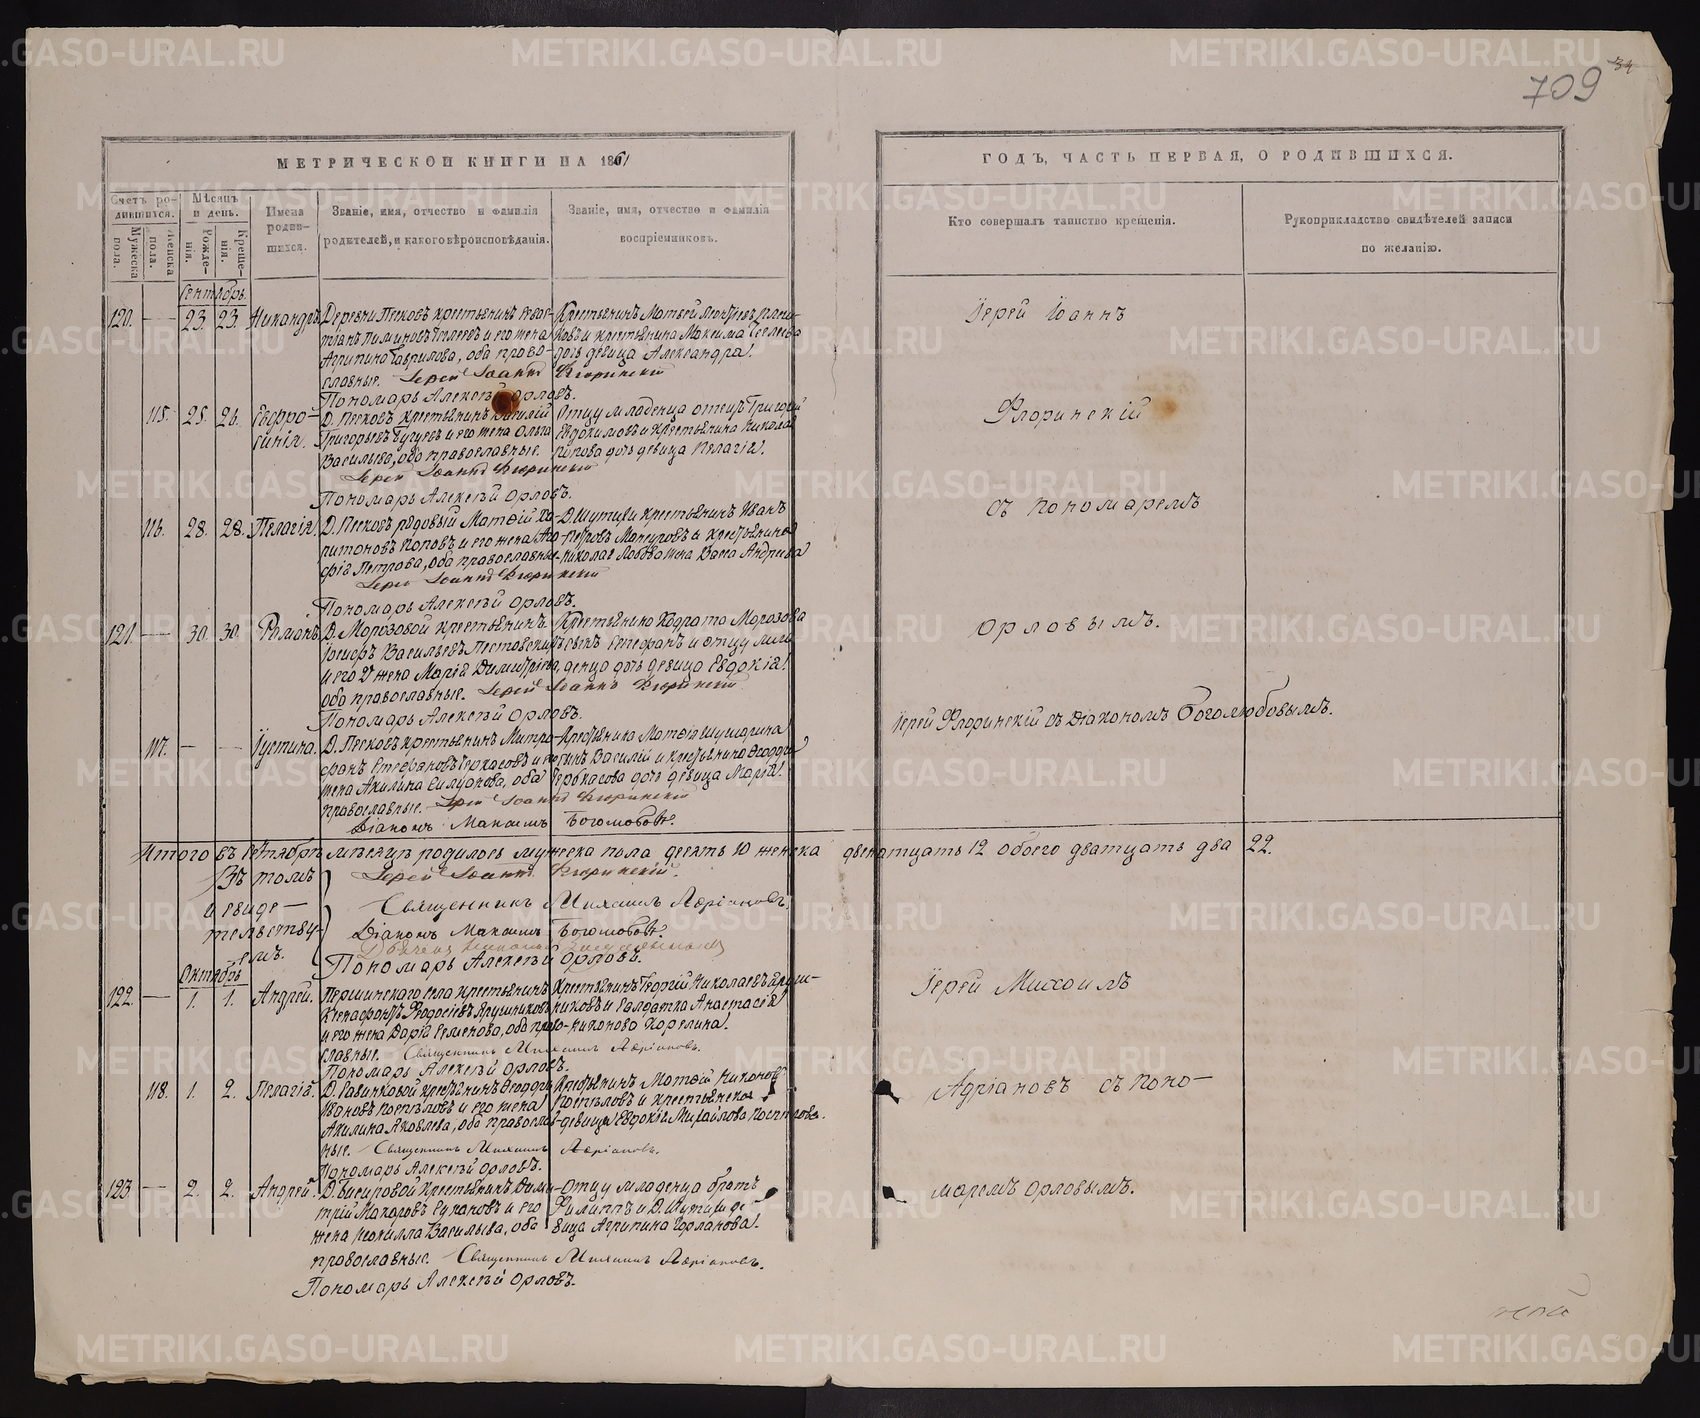 34
709
МЕТРИЧЕСКОЙ КНИГИ НА 1861
ГОДЪ, ЧАСТЬ ПЕРВАЯ, О РОДИВШИХСЯ.
Счетъ родившихся.
Мужеска пола.
Женска пола.
Мѣсяцъ и день.
Рожденія.
Крещенія.
Имена родившихся.
Званіе, имя, отчество и фамилія
родителей, и какого вѣроисповѣданія.
Званіе, имя, отчество и фамилія
воспріемниковъ.
Кто совершалъ таинство крещенія.
Рукоприкладство свидѣтелей записи
по желанію.
Сентябрь.
120. — 23. 23. Никандръ
Деревни Песковъ крестьянинъ
и его жена
Агрипина Гаврилова, оба право-
славные. Іерей Іоаннъ Флоринскій
Пономарь Алексѣй Орловъ.
Крестьянинъ Матвей
и крестьянина Максима
дочь девица Александра.
Іерей Іоаннъ
115. 25. 26. Евфро-
синія.
Д. Песковъ крестьянинъ Василій
Григорьевъ и его жена Ольга
Васильева, оба православные.
Іерей Іоаннъ Флоринскій
Пономарь Алексѣй Орловъ.
Отцу младенца отецъ Григорій
Евдокимовъ и крестьянина Николая
Попова дочь девица Пелагія.
Флоринскій
116. 28. 28. Пелагія.
Д. Песковъ рядовый Матѳій Ха-
ритоновъ Поповъ и его жена Ага-
фія Петрова, оба православные.
Іерей Іоаннъ Флоринскій
Пономарь Алексѣй Орловъ.
Д. Шутихи крестьянинъ Иванъ
Петровъ и крестьянина
Николая жена Васса Андреева
съ пономаремъ
121. — 30. 30. Романъ
Д. Морозовой крестьянинъ
Іосифъ Васильевъ Пестовскихъ
и его 2я жена Марія Димитріева,
оба православные. Іерей Іоаннъ Флоринскій
Пономарь Алексѣй Орловъ.
Крестьянина Кодрата Морозова
сынъ Стефанъ и отцу мла-
денца дочь девица Евдокія.
Орловымъ.
117. — — Іустина.
Д. Песковъ крестьянинъ Митро-
фанъ Стефановъ Черкасовъ и его
жена Акилина, оба
православные. Іерей Іоаннъ Флоринскій
Діаконъ Максимъ Боголюбовъ.
Крестьянина Матѳія
сынъ Василій и крестьянина Ѳеодора
Черкасова дочь девица Марія.
Іерей Флоринскій съ діакономъ Боголюбовымъ.
Итого въ сентябрѣ мѣсяцѣ родилось мужеска пола десять 10 женска двенатцать 12 обоего дватцать два 22.
Въ томъ
и свиде-
тельству-
емъ.
Іерей Іоаннъ Флоринскій.
Священникъ Михаилъ Адріановъ.
Діаконъ Максимъ Боголюбовъ.
Пономарь Алексѣй Орловъ.
Октябрь
122. — 1. 1. Андрей.
Першинскаго села крестьянинъ
Ксенофонтъ Ѳеодосіевъ Ярушниковъ
и его жена Дарія Семенова, оба право-
славные. Священникъ Михаилъ Адріановъ.
Пономарь Алексѣй Орловъ.
Крестьянинъ Георгій Николаевъ Яруш-
никовъ и солдатка Анастасія
Никонова Карелина.
Іерей Михаилъ
118. 1. 2. Пелагія.
Д. крестьянинъ Ѳеодоръ
Ивановъ Поспѣловъ и его жена
Акилина Яковлева, оба православ-
ные. Священникъ Михаилъ Адріановъ.
Пономарь Алексѣй Орловъ.
Крестьянинъ Матѳій Никоновъ
Поспѣловъ и крестьянская
девица Евдокія Михайлова Поспѣлова.
Адріановъ съ поно-
123. — 2. 2. Андрей.
Д. Бисеровой крестьянинъ Дими-
трій Макаровъ и его
жена Неонилла Васильева, оба
православные. Священникъ Михаилъ Адріановъ.
Пономарь Алексѣй Орловъ.
Отцу младенца братъ
Филиппъ и Д. Шутихи де-
вица Агрипина Горланова.
маремъ Орловымъ.
METRIKI.GASO-URAL.RU